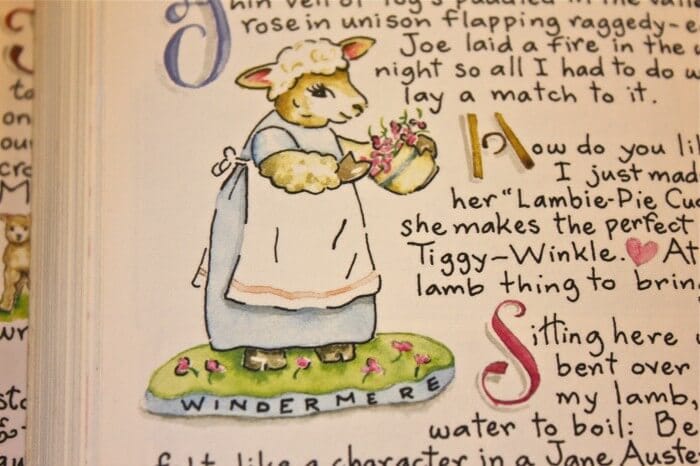 Thin veil of fog's puddled in the
rose in unison flapping raggedy-
Joe laid a fire in the
night so all I had to do
lay a match to it.
How do you li
I just made
her "Lambie-Pie Cu
she makes the perfect
Tiggy-Winkle. ♥ At
lamb thing to brin
Sitting here
bent over
my lamb,
WINDERMERE
water to boil: Be
felt like a character in a Jane Auste